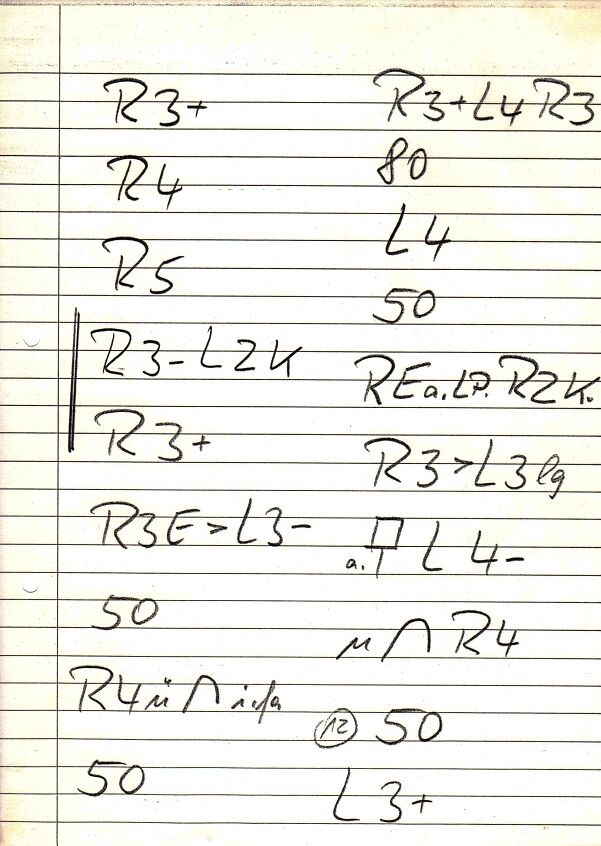 R3+
R4
R5
R3- L2K
R3+
R3E>L3-
50
R4 ü ∩
50
R3+L4R3
80
L4
50
RE a. LP. R2K.
R3>L3lg
a. L 4-
∩ R4
12 50
L3+